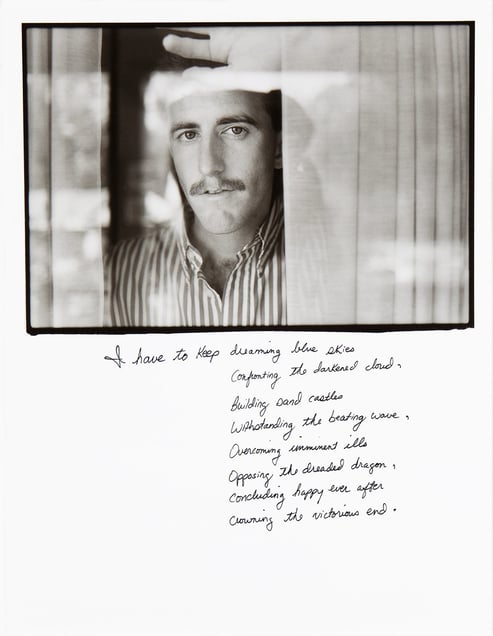 I have to keep dreaming blue skies
Confronting the darkened cloud,
Building sand castles
Withstanding the beating wave,
Overcoming imminent ills
Opposing the dreaded dragon,
Concluding happy ever after
Crowning the victorious end.